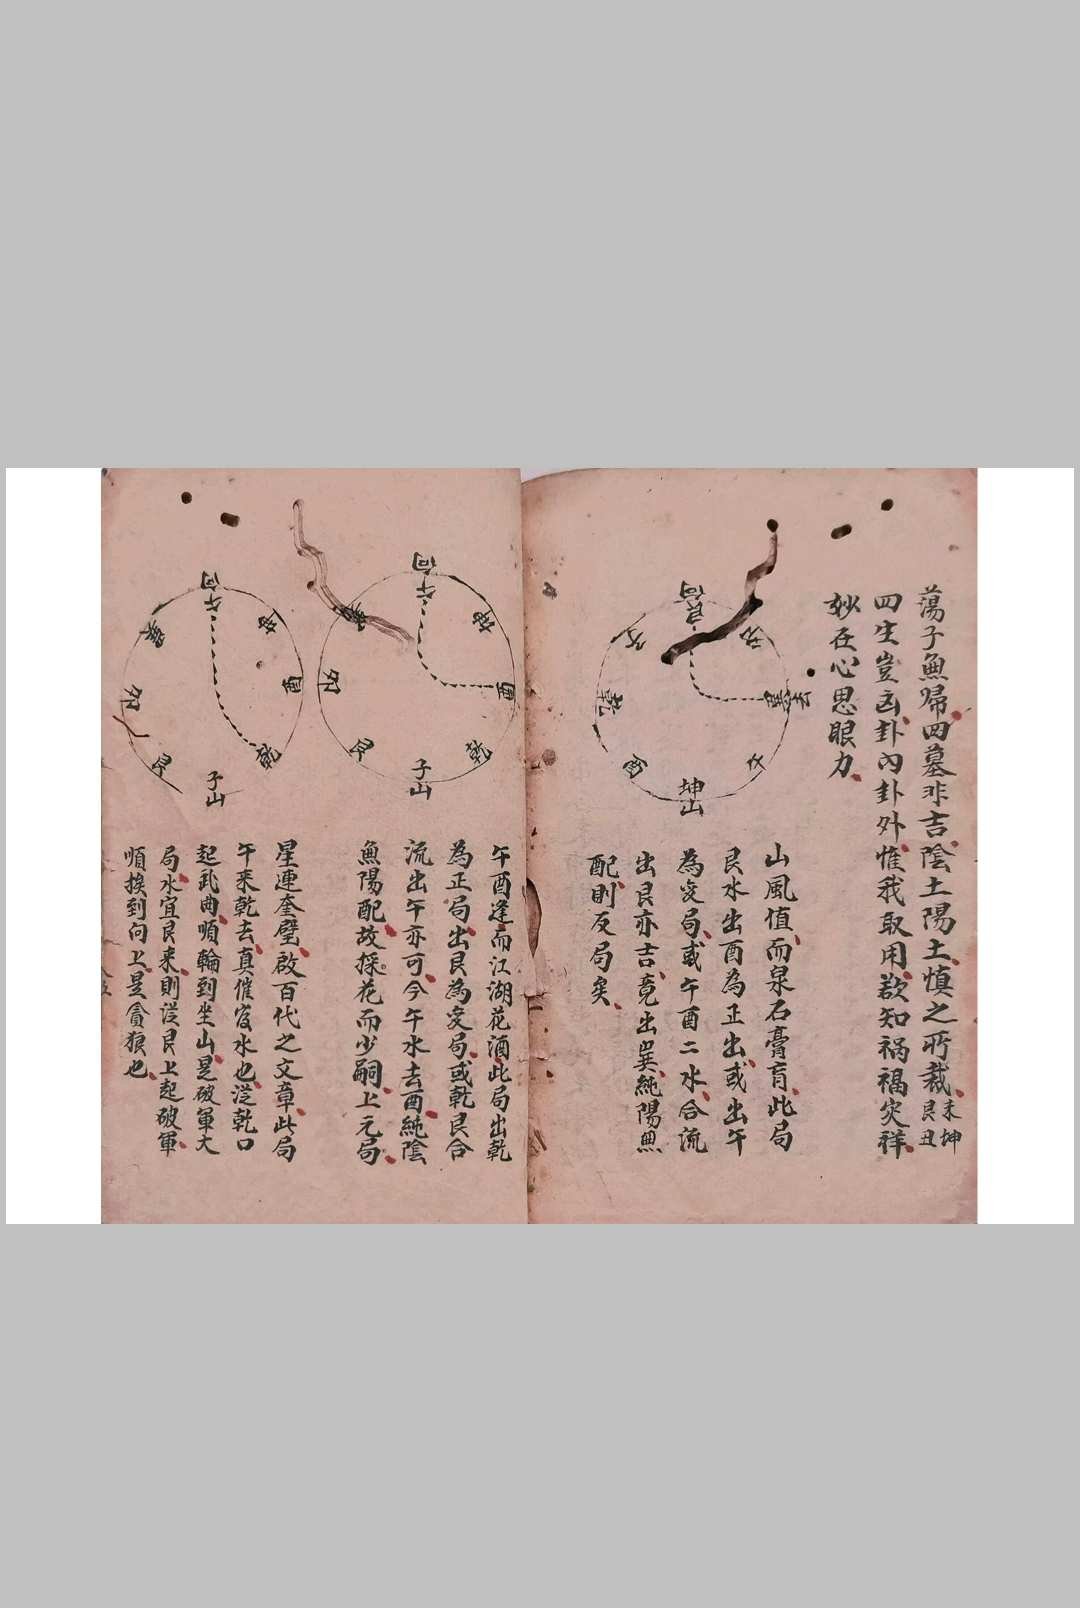 蕩子無歸四墓非吉陰土陽土慎之所裁未坤艮丑
四生豈凶卦內卦外惟我取用欲知禍福灾祥
妙在心思眼力
艮向
去
坤山
酉
乾
山風值而泉石膏肓此局
艮水出酉為正出或出午
為变局或午酉二水合流
出艮亦吉竟出巽純陽無
配則反局矣
午向
坤
酉
乾
子山
艮
卯
巽
午酉逢而江湖花酒此局出乾
為正局出艮為变局或乾艮合
流出午亦可今午水去酉純陰
無陽配故採花而少嗣上元局
午向
坤
酉
乾
子山
艮
卯
巽
星連奎璧啟百代之文章此局
午來乾去真催官水也從乾口
起武曲順輪到坐山是破軍大
局水宜艮來則從艮上起破軍
順挨到向上是貪狼也